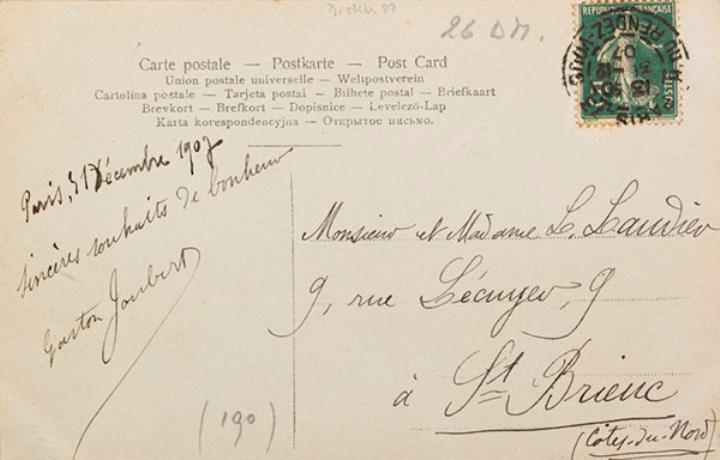 26 DM.
RÉPUBLIQUE FRANÇAISE
POSTES
PARIS
Carte postale — Postkarte — Post Card
Union postale universelle — Weltpostverein
Cartolina postale — Tarjeta postal — Bilhete postal — Briefkaart
Brevkort — Brefkort — Dopisnice — Levelező-Lap
Karta korespondencyjna — Открытое письмо.
Paris, 31 Décembre 1907
Sincères souhaits de bonheur
Gaston Joubert
Monsieur et Madame L. Laudier
9, rue Lécuyer, 9
à St Brieuc
(Côtes-du-Nord)
(190)